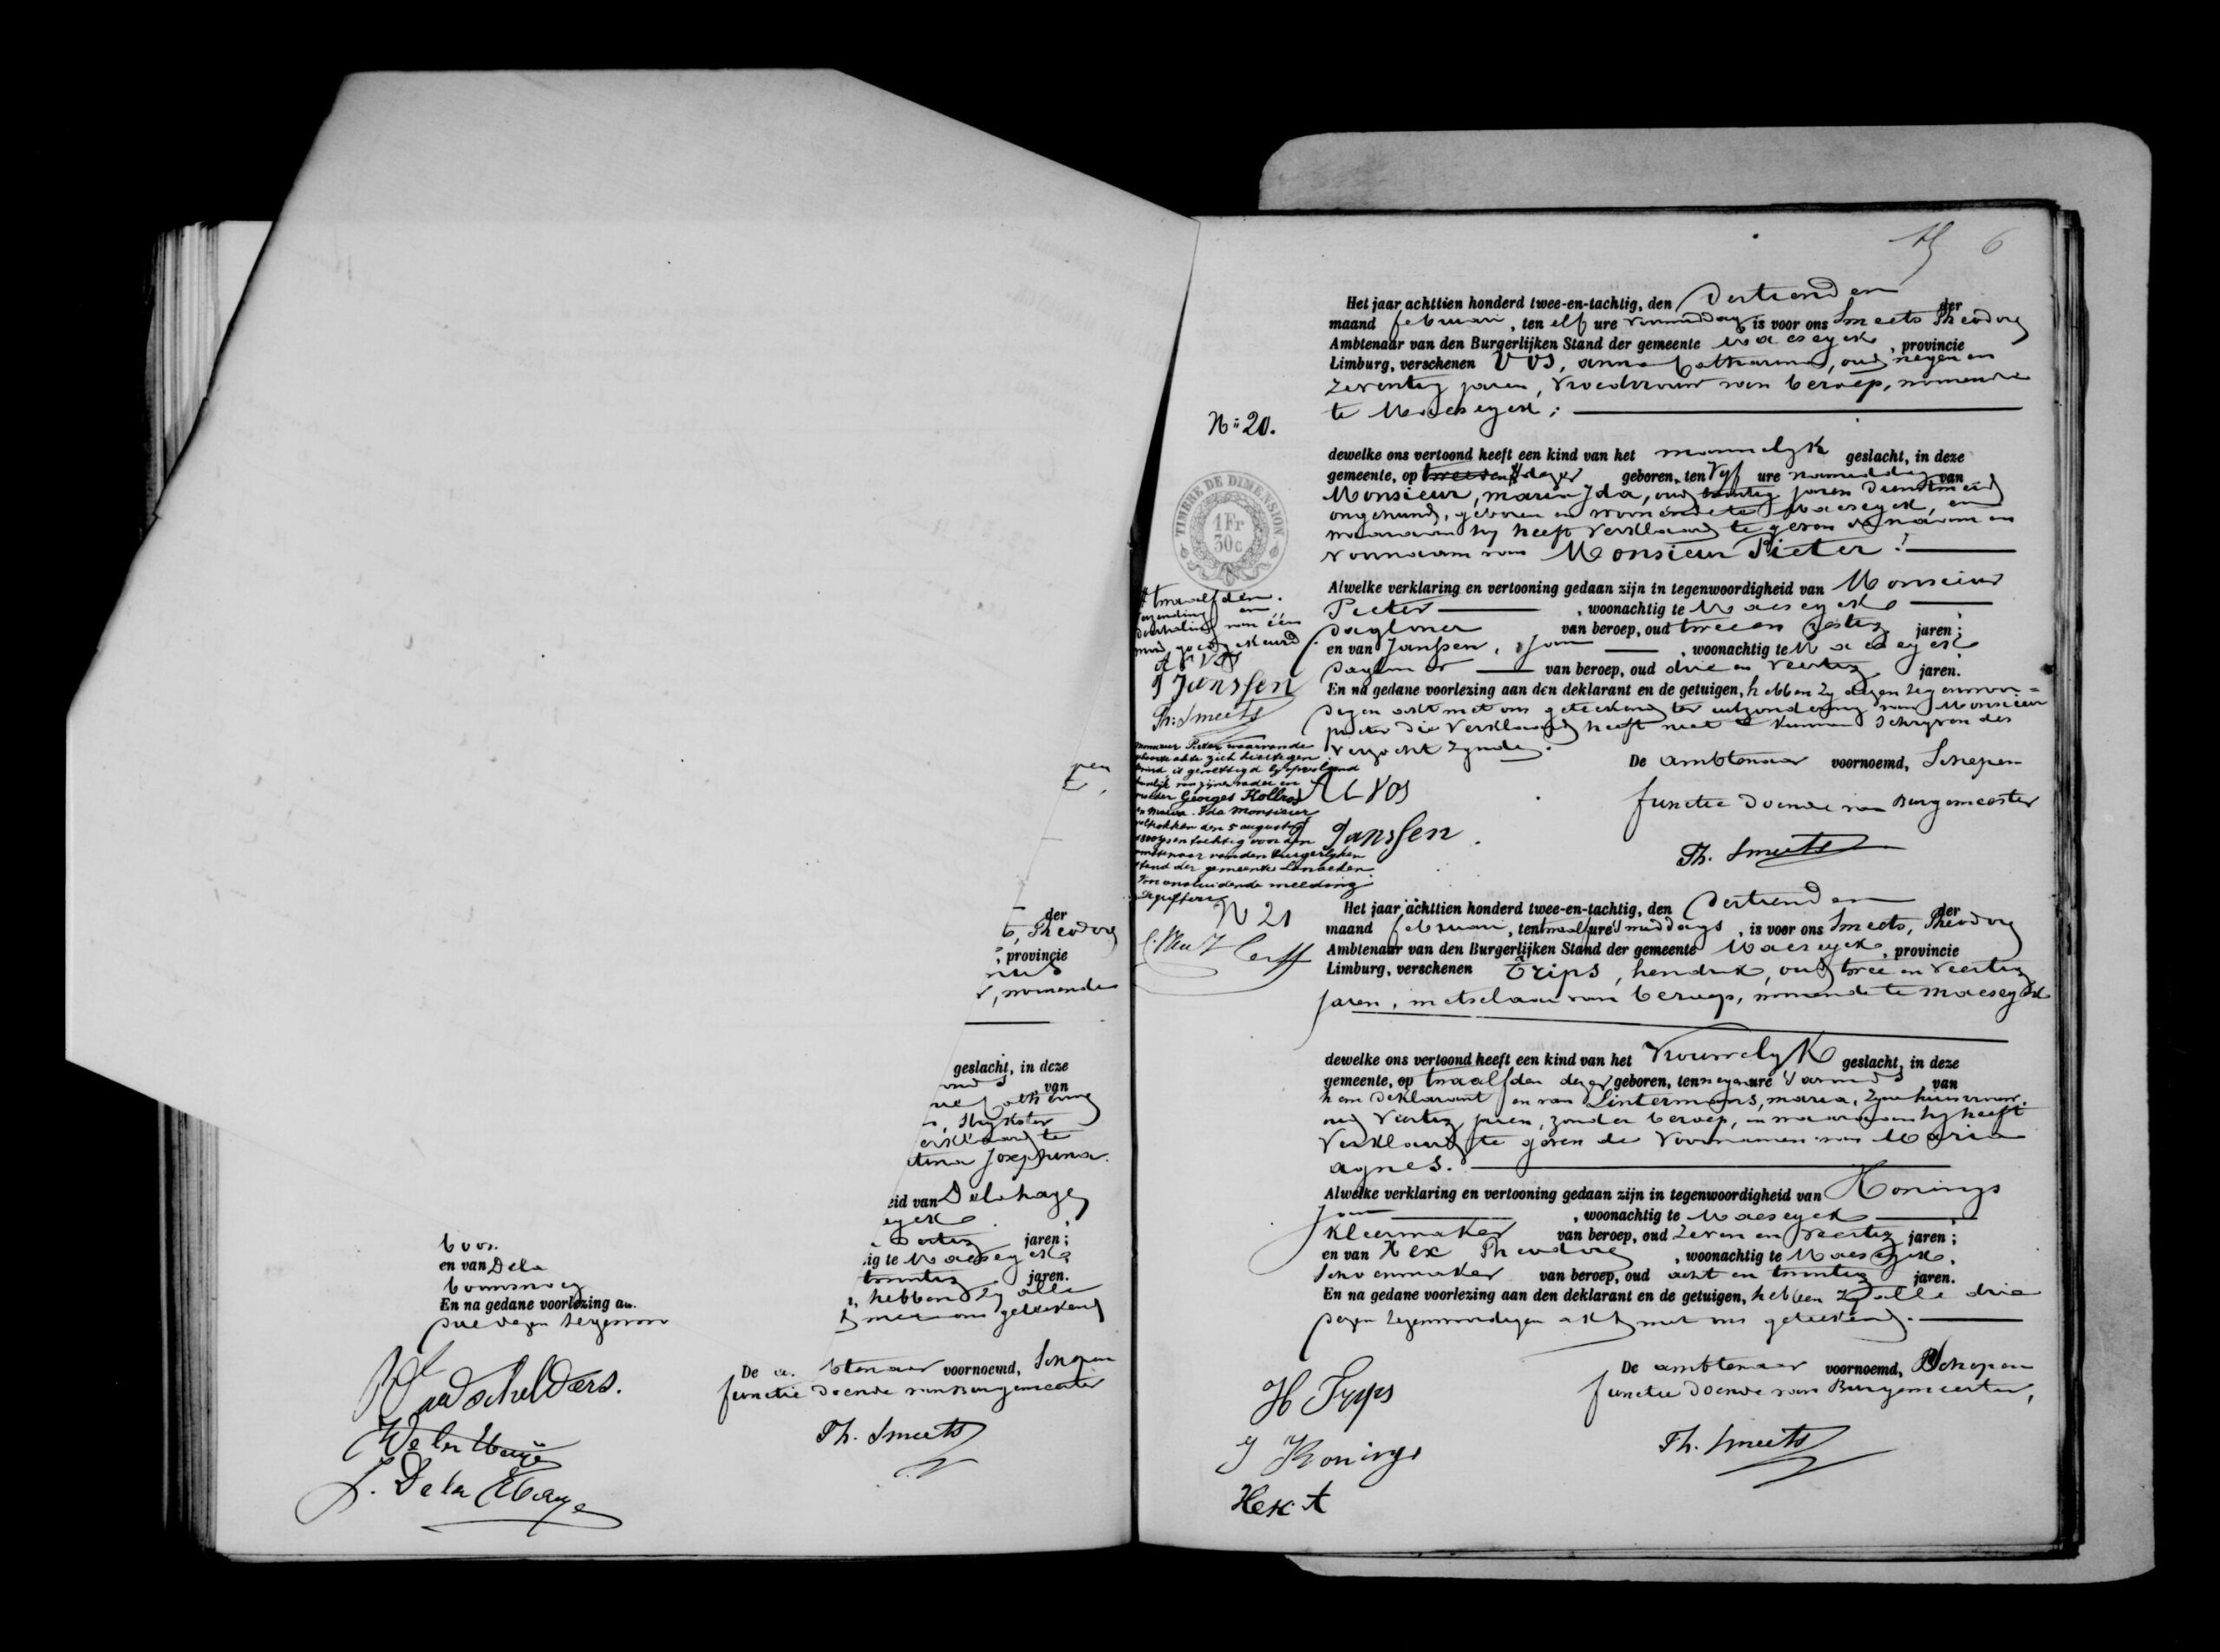 der
, Theodoor
, provincie
, wonende
geslacht, in deze
van
, Strykster
verklaard te
Josephina.
eid van Delahaye
jaren;
ig te Maeseyck
twintig jaren.
, hebben zy alle
met ons geteekend
en van Dela
En na gedane voorlezing aa
deze dezen tegenwoor
De a btenaar voornoemd, Schepen
functie doende van Burgemeester
Raadschelders.
J. De la Haye
Th. Smeets
6
Het jaar achttien honderd twee-en-tachtig, den Dertienden der
maand februari, ten elf ure voormiddag is voor ons Smeets Theodoor
Ambtenaar van den Burgerlijken Stand der gemeente Maeseyck, provincie
Limburg, verschenen Vos, anna Catharina, oud negen en
zeventig jaren, Vroedvrouw van beroep, wonende
te Maeseyck;
N° 20.
dewelke ons vertoond heeft een kind van het mannelyk geslacht, in deze
gemeente, op tweeden dezer geboren, ten Vyf ure namiddag van
Monsieur, maria Ida, oud twintig jaren Dienstmeid
ongehuwd, geboren en woonende te Maeseyck, en
waaraan hy heeft verklaard te geven de naam en
voornaam van Monsieur Pieter.
TIMBRE DE DIMENSION
1 Fr
30c
Alwelke verklaring en vertooning gedaan zijn in tegenwoordigheid van Monsieur
Pieter, woonachtig te Maeseyck
Dagloner van beroep, oud twee en zestig jaren;
en van Janssen, Jan, woonachtig te Maeseyck
Dagloner van beroep, oud drie en veertig jaren.
En na gedane voorlezing aan den deklarant en de getuigen, hebben zy dezen tegenwoor=
digen akt met ons geteekend ter uitzondering van Monsieur
pieter die verklaard heeft niet te kunnen schryven des
verzocht zynde.
De ambtenaar voornoemd, Schepen
functie doende van Burgemeester
Th. Smeets
A C Vos
J Janssen.
twaalfden.
verzending en
doorhaling van één
woord goedgekeurd
A C Vos
J Janssen
Th: Smeets
Monsieur Pieter waarvan de
geboorte akte zich hiertegen
is gewettigd by opvolgend
huwelijk van zijne vader en
moeder Georges Hollros
en Maria-Ida Monsieur
voltrokken den 5 augustus
tachtig voor den
ambtenaar van den burgerlyken
stand der gemeente Lanaeken.
melding
De griffier
N 21
Het jaar achttien honderd twee-en-tachtig, den Dertienden der
maand februari, ten twaalf ure 's middags, is voor ons Smeets, Theodoor
Ambtenaar van den Burgerlijken Stand der gemeente Maeseyck, provincie
Limburg, verschenen Trips, hendrik, oud twee en veertig
jaren, metselaar van beroep, wonende te Maeseyck
dewelke ons vertoond heeft een kind van het Vrouwelyk geslacht, in deze
gemeente, op twaalfden dezer geboren, ten negen ure 's avonds van
hem deklarant en van Lintermans, maria, zyne huisvrouw.
oud veertig jaren, zonder beroep, en waaraan hy heeft
Verklaard te geven de Voornamen van Maria
agnes.
Alwelke verklaring en vertooning gedaan zijn in tegenwoordigheid van Konings
Jan, woonachtig te Maeseyck
Kleermaker van beroep, oud Zeven en veertig jaren;
en van Hex Theodoor, woonachtig te Maeseyck,
Schoenmaker van beroep, oud acht en twintig jaren.
En na gedane voorlezing aan den deklarant en de getuigen, hebben zy alle drie
dezen tegenwoordigen akt met ons geteekend.
De ambtenaar voornoemd, Schepen
functie doende van Burgemeester,
H Tryps
J Konings
Hex T
Th. Smeets